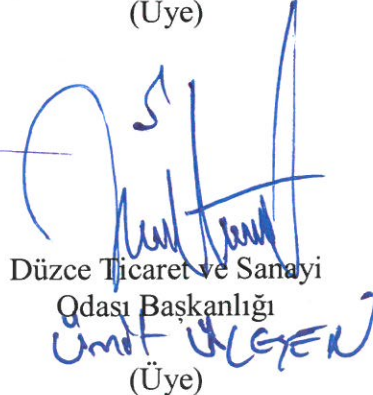 (Üye)
Düzce Ticaret ve Sanayi
Odası Başkanlığı
Ümit
(Üye)